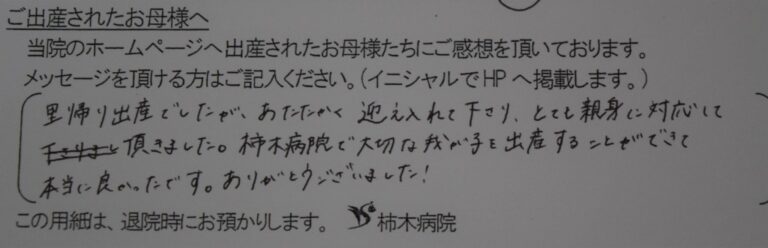 ご出産されたお母様へ
当院のホームページへ出産されたお母様たちにご感想を頂いております。
メッセージを頂ける方はご記入ください。(イニシャルでHPへ掲載します。)
里帰り出産でしたが、あたたかく迎え入れて下さり、とても親身に対応して
下さりまし頂きました。柿木病院で大切な我が子を出産することができて
本当に良かったです。ありがとうございました!
この用紙は、退院時にお預かりします。 柿木病院